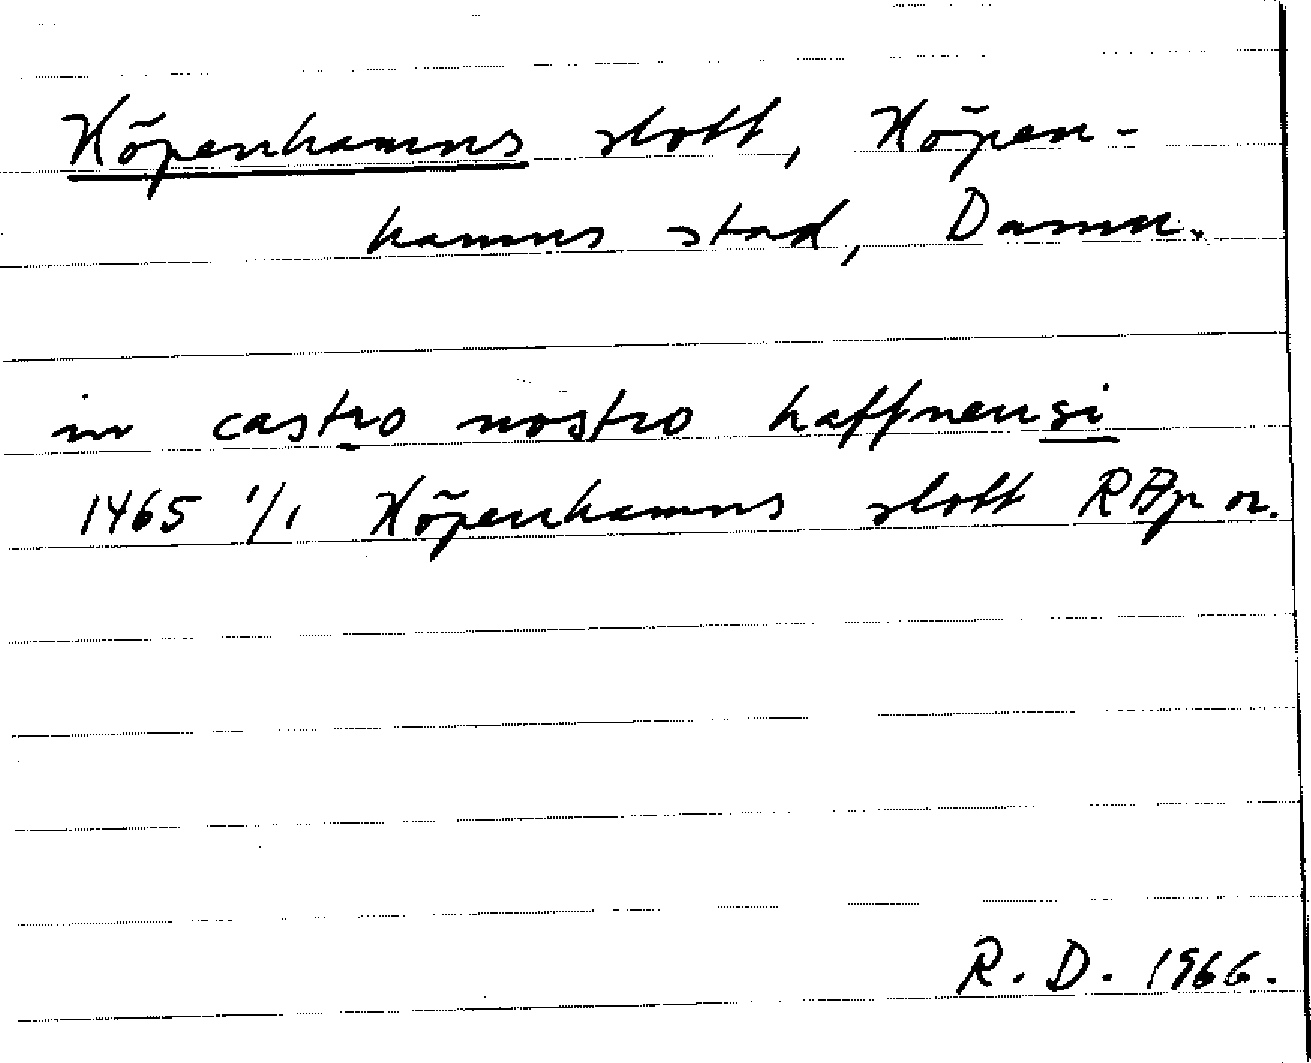 Köpenhamns slott, Köpen-
hamns stad, Danm.
in castro nostro haffnensi
1465 1/1 Köpenhamns slott RAp or.
R. D. 1966.